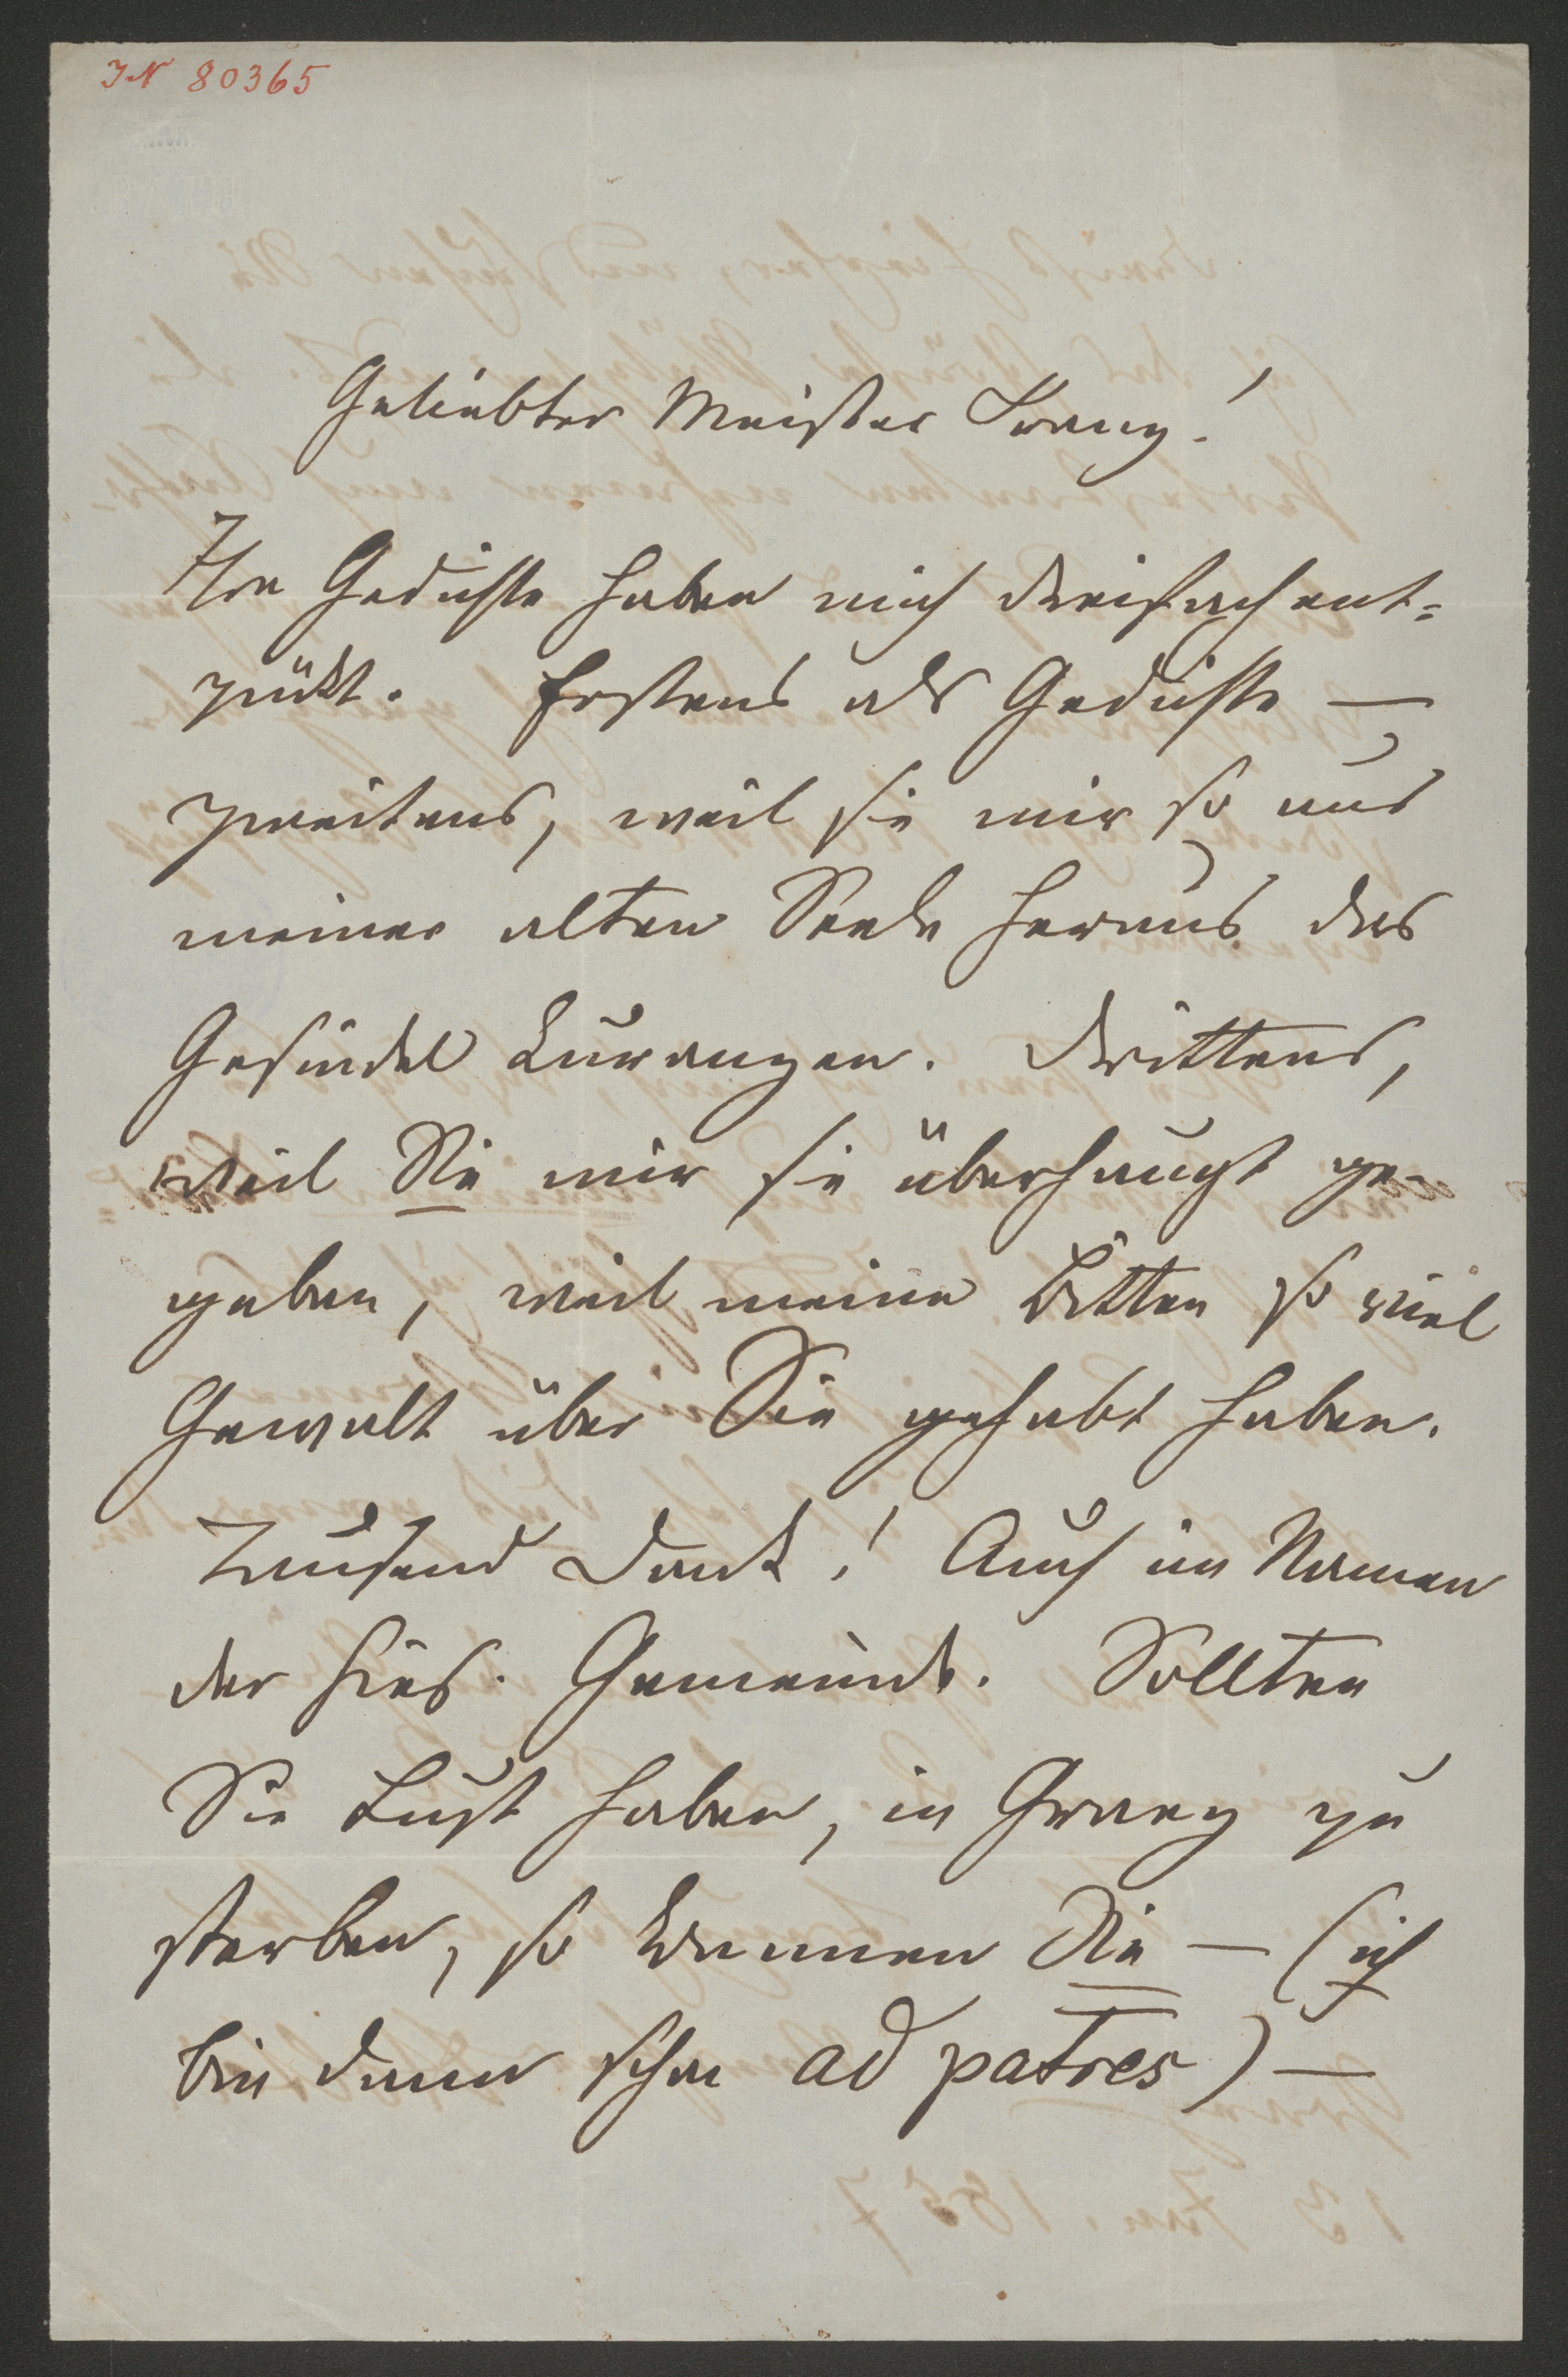 IN 80365
Geliebter Meister Franz!
Ihre Gedichte haben mich dreifach ent=
zückt. Erstens als Gedichte —
zweitens, weil sie mir so aus
meiner alten Seele heraus das
Gesindel kuranzen. Drittens,
weil Sie mir sie überhaupt ge-
geben, weil meine Bitten so viel
Gewalt über Sie gehabt haben.
Tausend Dank! Auch im Namen
der hies. Gemeinde. Sollten
Sie Lust haben, in Graz zu
sterben, so kommen Sie — (ich
bin dann schon ad patres) —